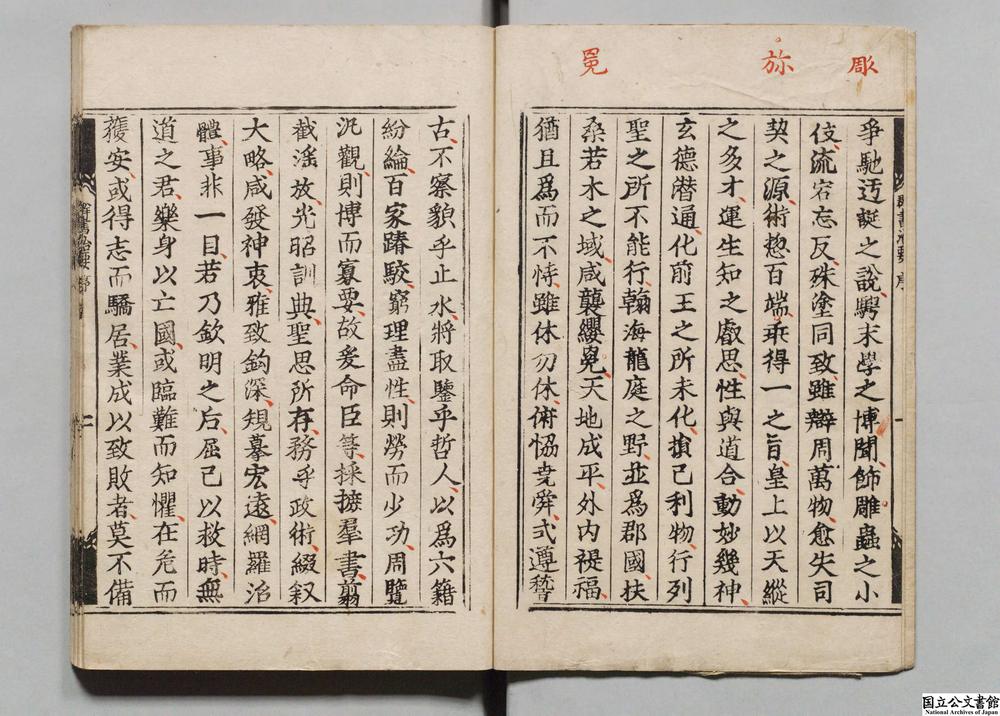 彫
旀
冕
爭馳迃誕之說騁末學之博聞飾雕蟲之小
伎流宕忘反殊塗同致雖辯周萬物愈失司
契之源術揔百端乖得一之旨皇上以天縱
之多才運生知之叡思性與道合動妙幾神
玄德潛通化前王之所未化損己利物行列
聖之所不能行翰海龍庭之野並爲郡國扶
桑若木之域咸襲纓冕天地成平外内禔福
猶且爲而不恃雖休勿休俯恊堯舜式遵稽
古不察貌乎止水將取鑒乎哲人以爲六籍
紛綸百家踳駮窮理盡性則勞而少功周覽
汎觀則博而寡要故爰命臣等採摭羣書翦
截滛放光昭訓典聖思所存務乎政術綴叙
大略咸發神衷雅致鈎深規摹宏遠網羅治
體事非一目若乃欽明之后屈己以救時無
道之君樂身以亡國或臨難而知懼在危而
獲安或得志而驕居業成以致敗者莫不備
群書治要 序
一
群書治要 序
二
国立公文書館
National Archives of Japan